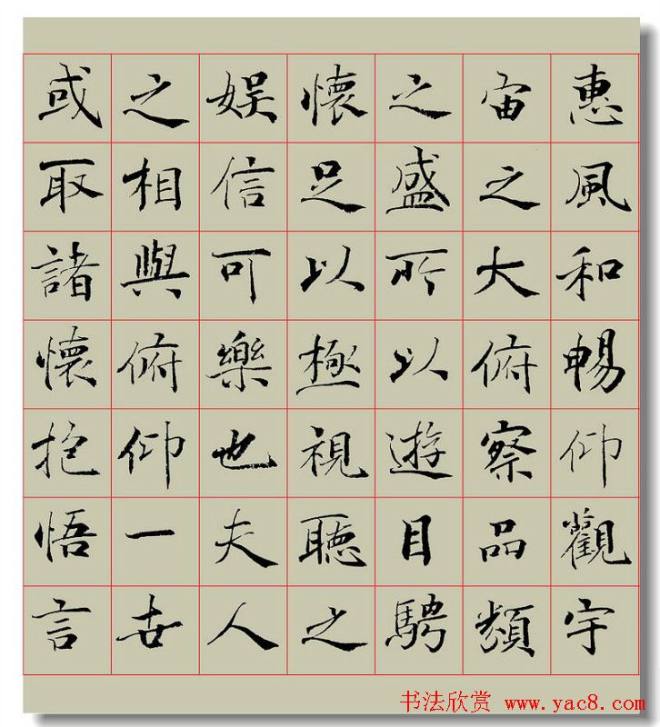 惠風和暢仰觀宇
宙之大俯察品類
之盛所以遊目騁
懷足以極視聽之
娱信可樂也夫人
之相與俯仰一世
或取諸懷抱悟言
书法欣赏 www.yac8.com